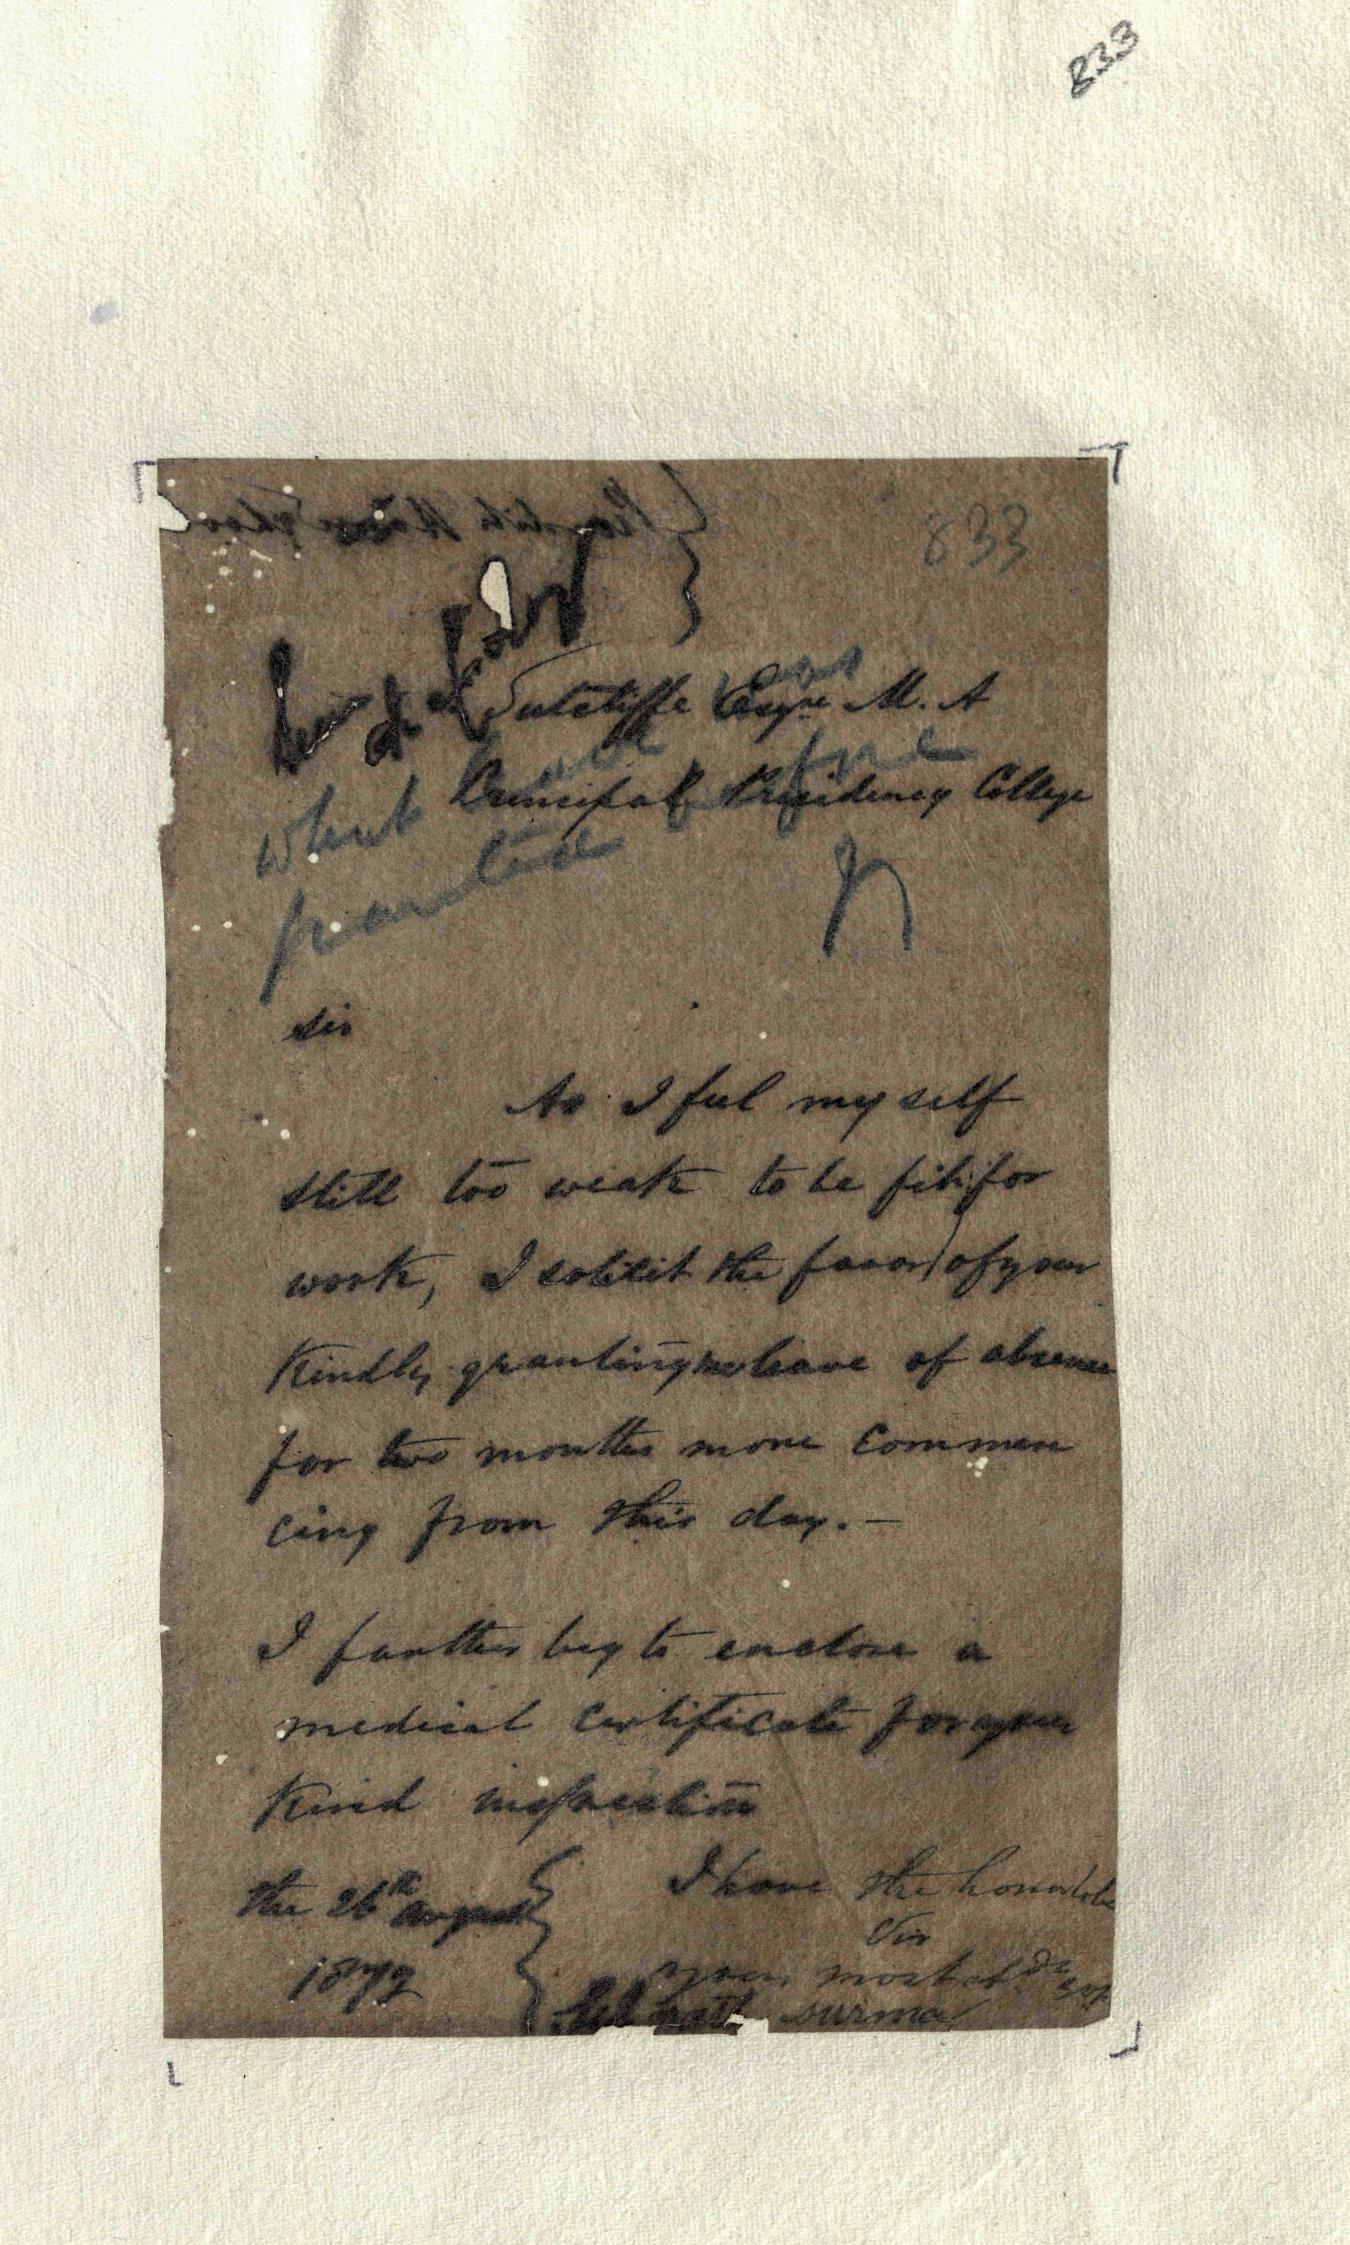 833
833
Sutcliffe Esqre M. A
Principal Presidency College
what leave was
granted before
Sir
As I feel my self
still too weak to be fit for
work, I solicit the favor of your
Kindly granting me leave of absence
for two months more commen
cing from this day. —
I further beg to enclose a
medical certificate for your
Kind inspection
the 26th August
1872
I have the honor to be
Sir
your most obdt
surma